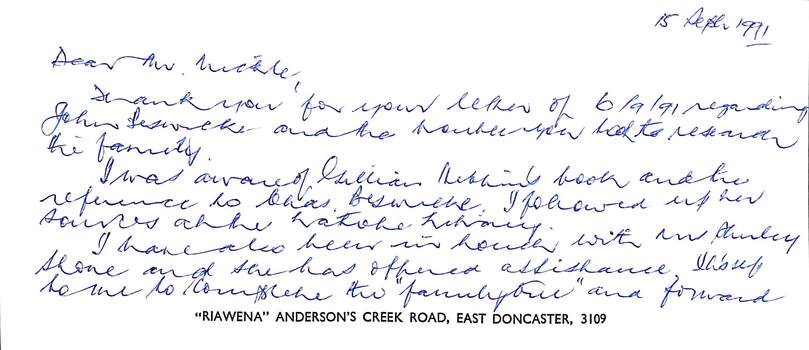 15 Sept 1991
Dear Mr. Mickle,
Thank you for your letter of 6/9/91 regarding
John Beswicke and the trouble you took to research
the family.
I was aware of Gillian Hibbins book and the
reference to Chas. Beswicke. I followed up her
sources at the Latrobe Library.
I have also been in touch with Mrs Shirley
and she has offered assistance. It is up
to me to complete the "family tree" and forward
"RIAWENA" ANDERSON'S CREEK ROAD, EAST DONCASTER, 3109